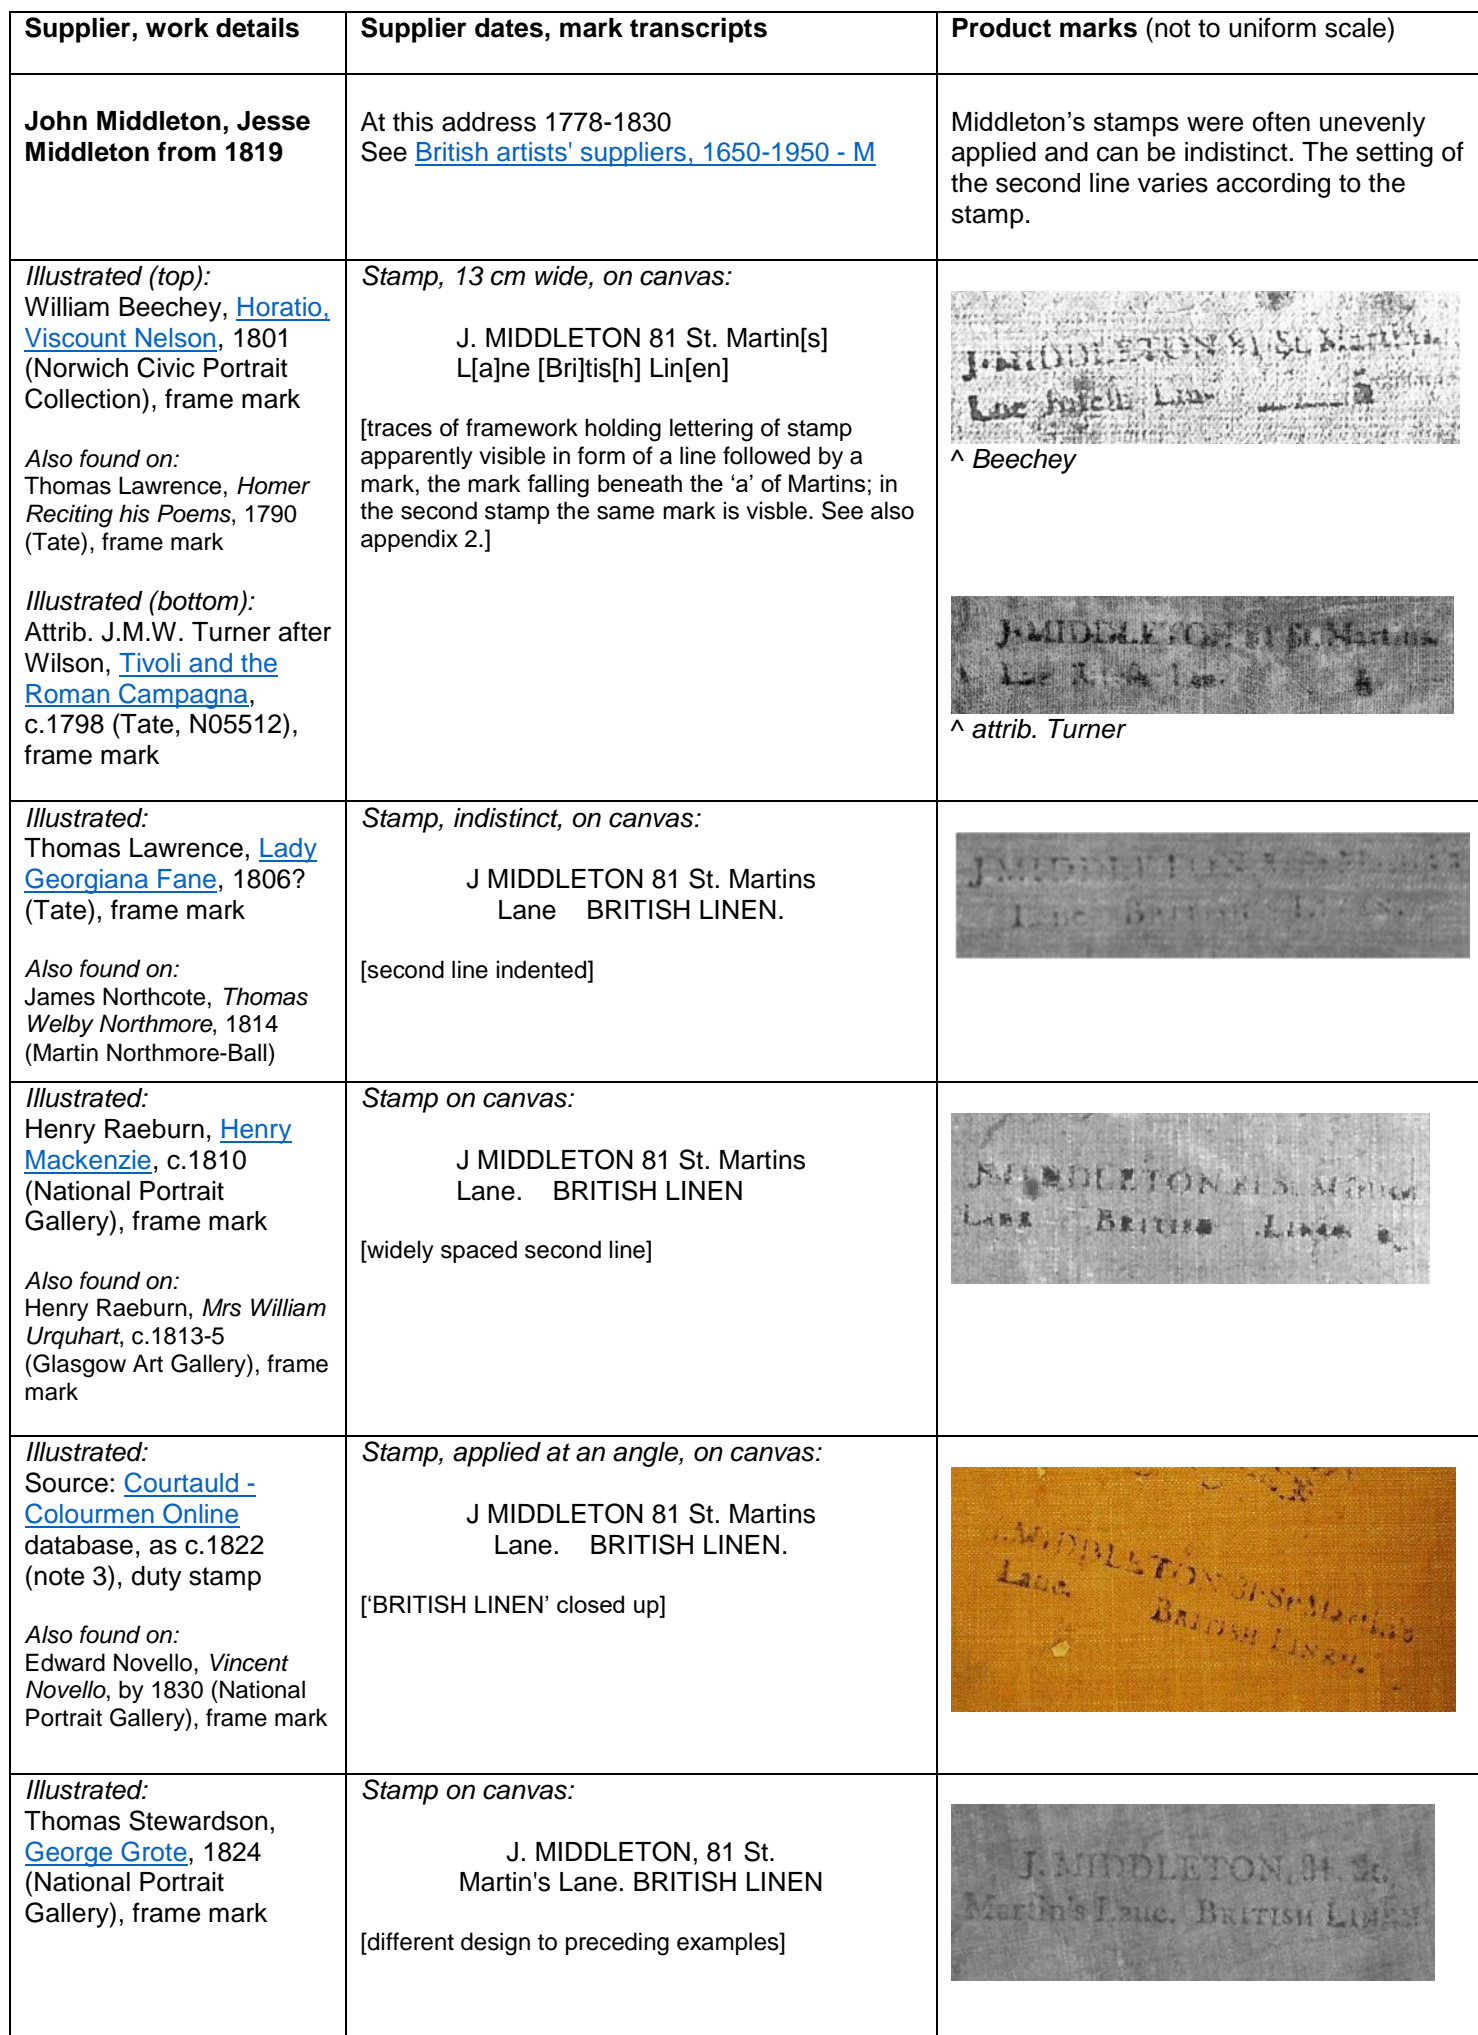 Supplier, work details
Supplier dates, mark transcripts
Product marks (not to uniform scale)
John Middleton, Jesse
Middleton from 1819
At this address 1778-1830
See British artists' suppliers, 1650-1950 - M
Middleton’s stamps were often unevenly
applied and can be indistinct. The setting of
the second line varies according to the
stamp.
Illustrated (top):
William Beechey, Horatio,
Viscount Nelson, 1801
(Norwich Civic Portrait
Collection), frame mark
Also found on:
Thomas Lawrence, Homer
Reciting his Poems, 1790
(Tate), frame mark
Illustrated (bottom):
Attrib. J.M.W. Turner after
Wilson, Tivoli and the
Roman Campagna,
c.1798 (Tate, N05512),
frame mark
Stamp, 13 cm wide, on canvas:
J. MIDDLETON 81 St. Martin[s]
L[a]ne [Bri]tis[h] Lin[en]
[traces of framework holding lettering of stamp
apparently visible in form of a line followed by a
mark, the mark falling beneath the ‘a’ of Martins; in
the second stamp the same mark is visble. See also
appendix 2.]
J. MIDDLETON 81 St. Martin
Lne Lin
^ Beechey
J. MIDDLETON 81 St. Martins
Lne
^ attrib. Turner
Illustrated:
Thomas Lawrence, Lady
Georgiana Fane, 1806?
(Tate), frame mark
Also found on:
James Northcote, Thomas
Welby Northmore, 1814
(Martin Northmore-Ball)
Stamp, indistinct, on canvas:
J MIDDLETON 81 St. Martins
Lane BRITISH LINEN.
[second line indented]
J MIDDLETON
Lane BRITISH
Illustrated:
Henry Raeburn, Henry
Mackenzie, c.1810
(National Portrait
Gallery), frame mark
Also found on:
Henry Raeburn, Mrs William
Urquhart, c.1813-5
(Glasgow Art Gallery), frame
mark
Stamp on canvas:
J MIDDLETON 81 St. Martins
Lane. BRITISH LINEN
[widely spaced second line]
J MIDDLETON 81 St. Martins
Lane BRITISH LINEN
Illustrated:
Source: Courtauld -
Colourmen Online
database, as c.1822
(note 3), duty stamp
Also found on:
Edward Novello, Vincent
Novello, by 1830 (National
Portrait Gallery), frame mark
Stamp, applied at an angle, on canvas:
J MIDDLETON 81 St. Martins
Lane. BRITISH LINEN.
[‘BRITISH LINEN’ closed up]
MIDDLETON 81 St. Martin's
Lane. BRITISH LINEN.
Illustrated:
Thomas Stewardson,
George Grote, 1824
(National Portrait
Gallery), frame mark
Stamp on canvas:
J. MIDDLETON, 81 St.
Martin's Lane. BRITISH LINEN
[different design to preceding examples]
J. MIDDLETON, 81. St.
Martin's Lane. BRITISH LINEN